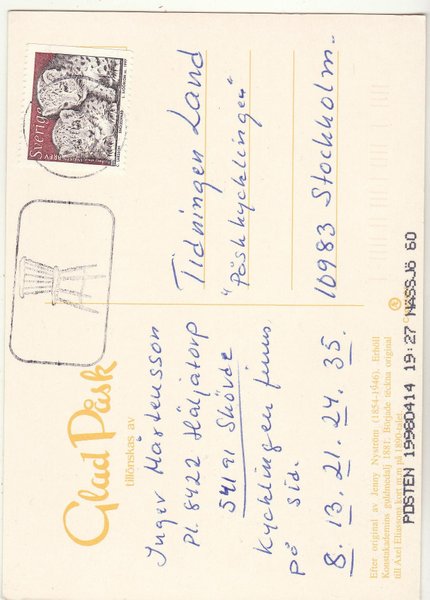 Glad Påsk
tillönskas av
Inger Mårtensson
Pl. 8422 Häljatorp
54191 Skövde
Kycklingen finns
på sid.
8. 13. 21. 24. 35.
Sverige
BREV
Tidningen Land
"Påskkycklingen"
10983 Stockholm
Efter original av Jenny Nyström (1854-1946). Erhöll
Konstakademins guldmedalj 1881. Började teckna original
till Axel Eliassons kort m.m på 1890-talet.
POSTEN 19980414 19:27 NÄSSJÖ 60